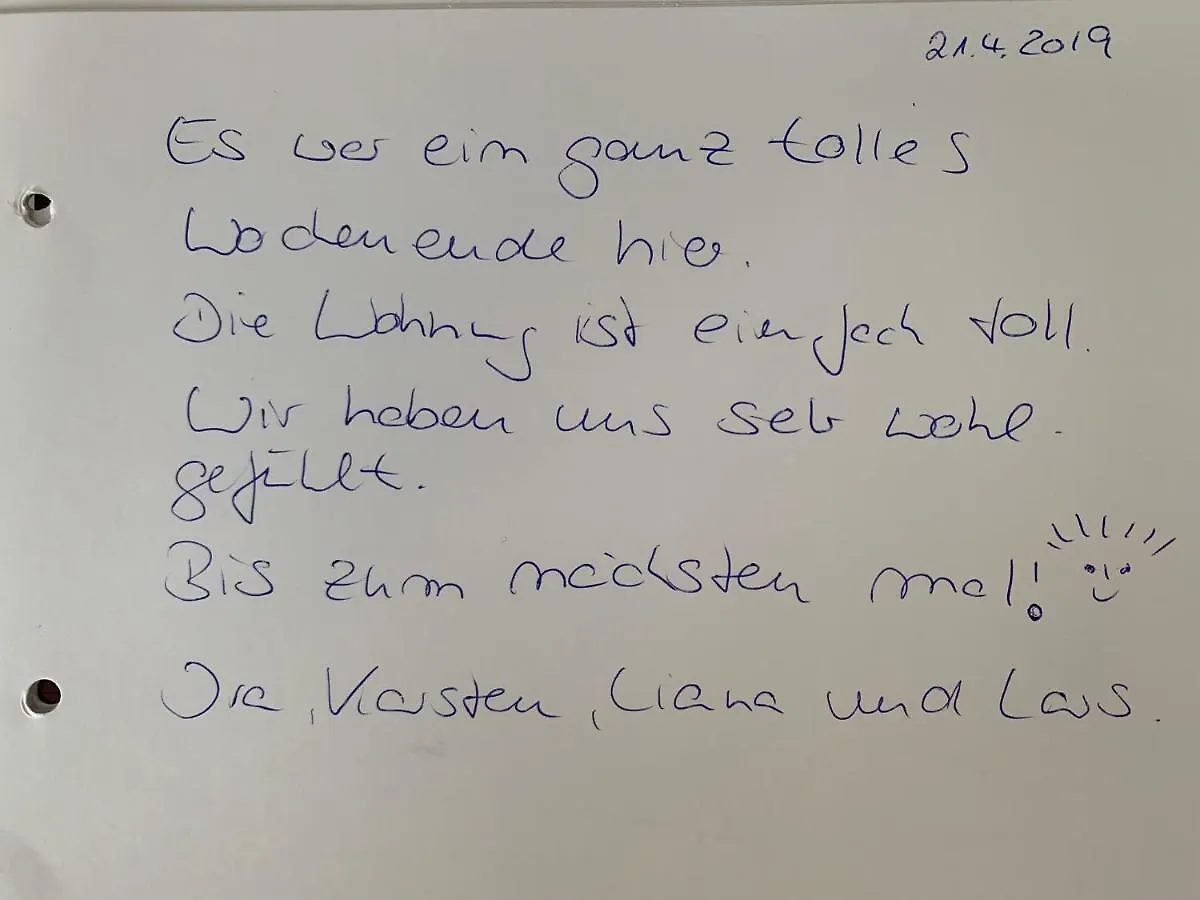 21.4.2019
Es war ein ganz tolles
Wochenende hier.
Die Wohnung ist einfach toll.
Wir haben uns sehr wohl
gefühlt.
Bis zum nächsten mal!
Karsten, Liana und Lars.